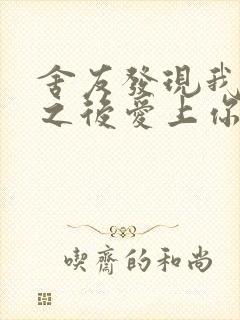 舍友發現我
之後愛上你
喫齋的和尚